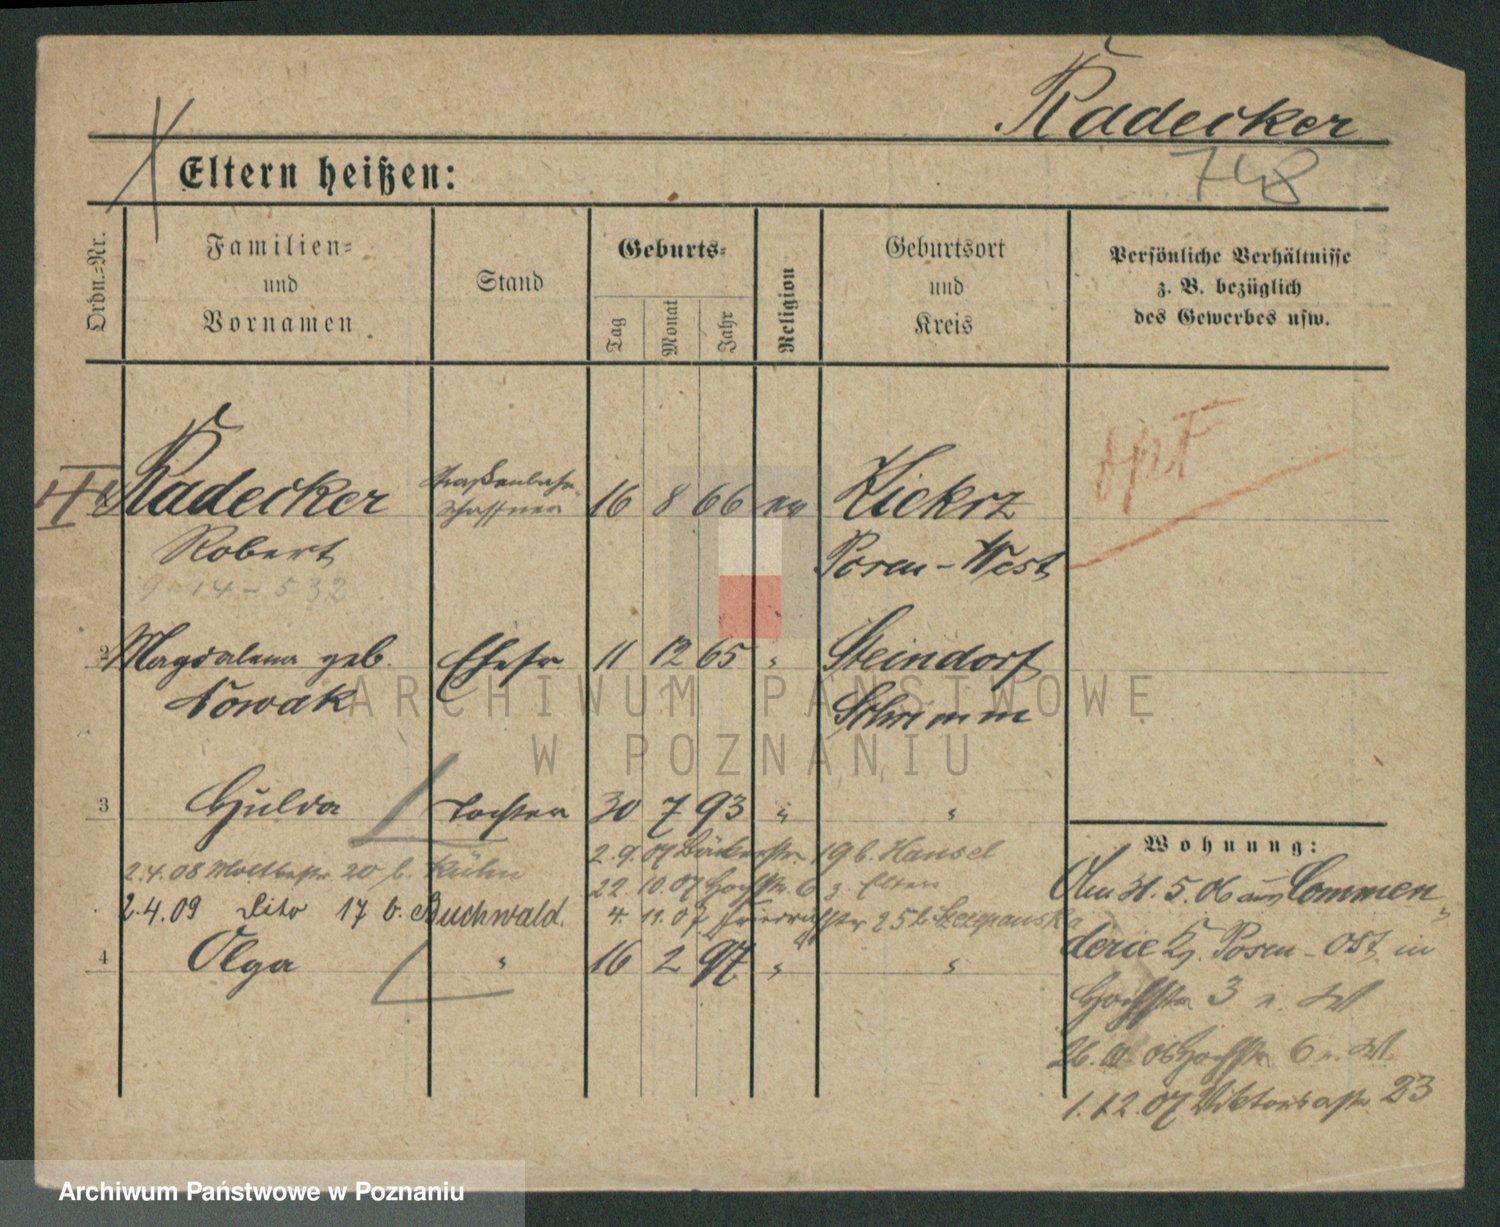 Radecker
748
Eltern heißen:
Ordn.=Nr.
Familien=
und
Vornamen
Stand
Geburts=
Tag
Monat
Jahr
Religion
Geburtsort
und
Kreis
Persönliche Verhältnisse
z. B. bezüglich
des Gewerbes usw.
Radecker Straßenbahn- schaffner 16 8 66 ev Kiekrz
Robert Posen-West
9-14-532
2 Magdalena geb. Ehefr 11 12 65 " Steindorf
Nowak Schrimm
ARCHIWUM PAŃSTWOWE
W POZNANIU
3 Hulda Tochter 30 7 93 " "
2.9.07 Bäckerstr. 19 b. Hansel
2.4.08 Moltkestr. 20 b. Kühn
22.10.07 Hochstr. 6 z. Eltern
2.4.09 dito 17 b. Buchwald.
4.11.07 Friedrichstr 25 b. Szczepanska
4 Olga " 16 2 97 " "
Wohnung:
Am 31.5.06 aus Commen-
derie Kr. Posen-Ost in
Hochstr 3
Hochstr 6
1.12.07 Viktoriastr 23
Archiwum Państwowe w Poznaniu